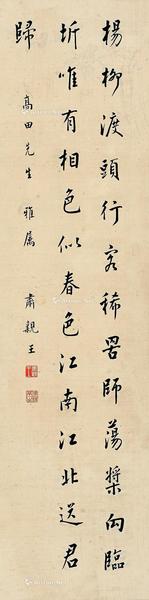 楊柳渡頭行客稀罟師蕩槳向臨
圻唯有相色似春色江南江北送君
歸
高田先生 雅属
肅親王